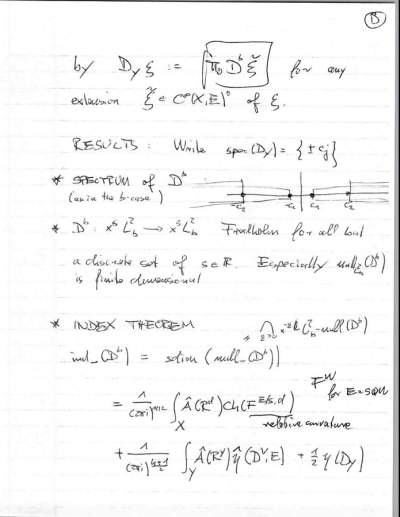 B
by D_Y ξ := π_0 D^b ξ̃ for any
extension ξ̃ ∈ C^∞(X,E)^0 of ξ.
RESULTS: Write spec(D_Y) = { ± c_j }
* SPECTRUM of D^b
(as in the b-case)
-c_2 -c_1 c_1 c_2
* D^b : x^s L^2_b → x^s L^2_b Fredholm for all but
a discrete set of s ∈ R. Especially null (D^b)
is finite dimensional
* INDEX THEOREM
ind_(D^b) = (null_(D^b))
= 1/(2πi)^{n/2} ∫_X Â(R^d) Ch(F^{E/S,d})
relative curvature
F^W
for E = S⊗W
+ 1/(2πi) ∫_Y Â(R^Y) η̂(D^V,E) + 1/2 η(D_Y)